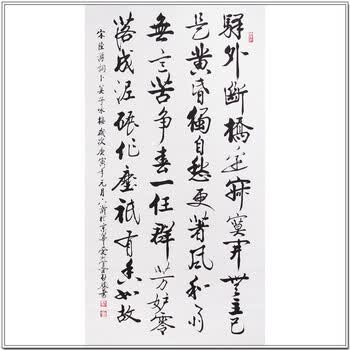 驛外斷橋邊寂寞開無主已
是黃昏獨自愁更著風和雨
無意苦爭春一任群芳妒零
落成泥碾作塵祇有香如故
宋陸游詞卜算子咏梅歲次庚寅年元月 於京華 書